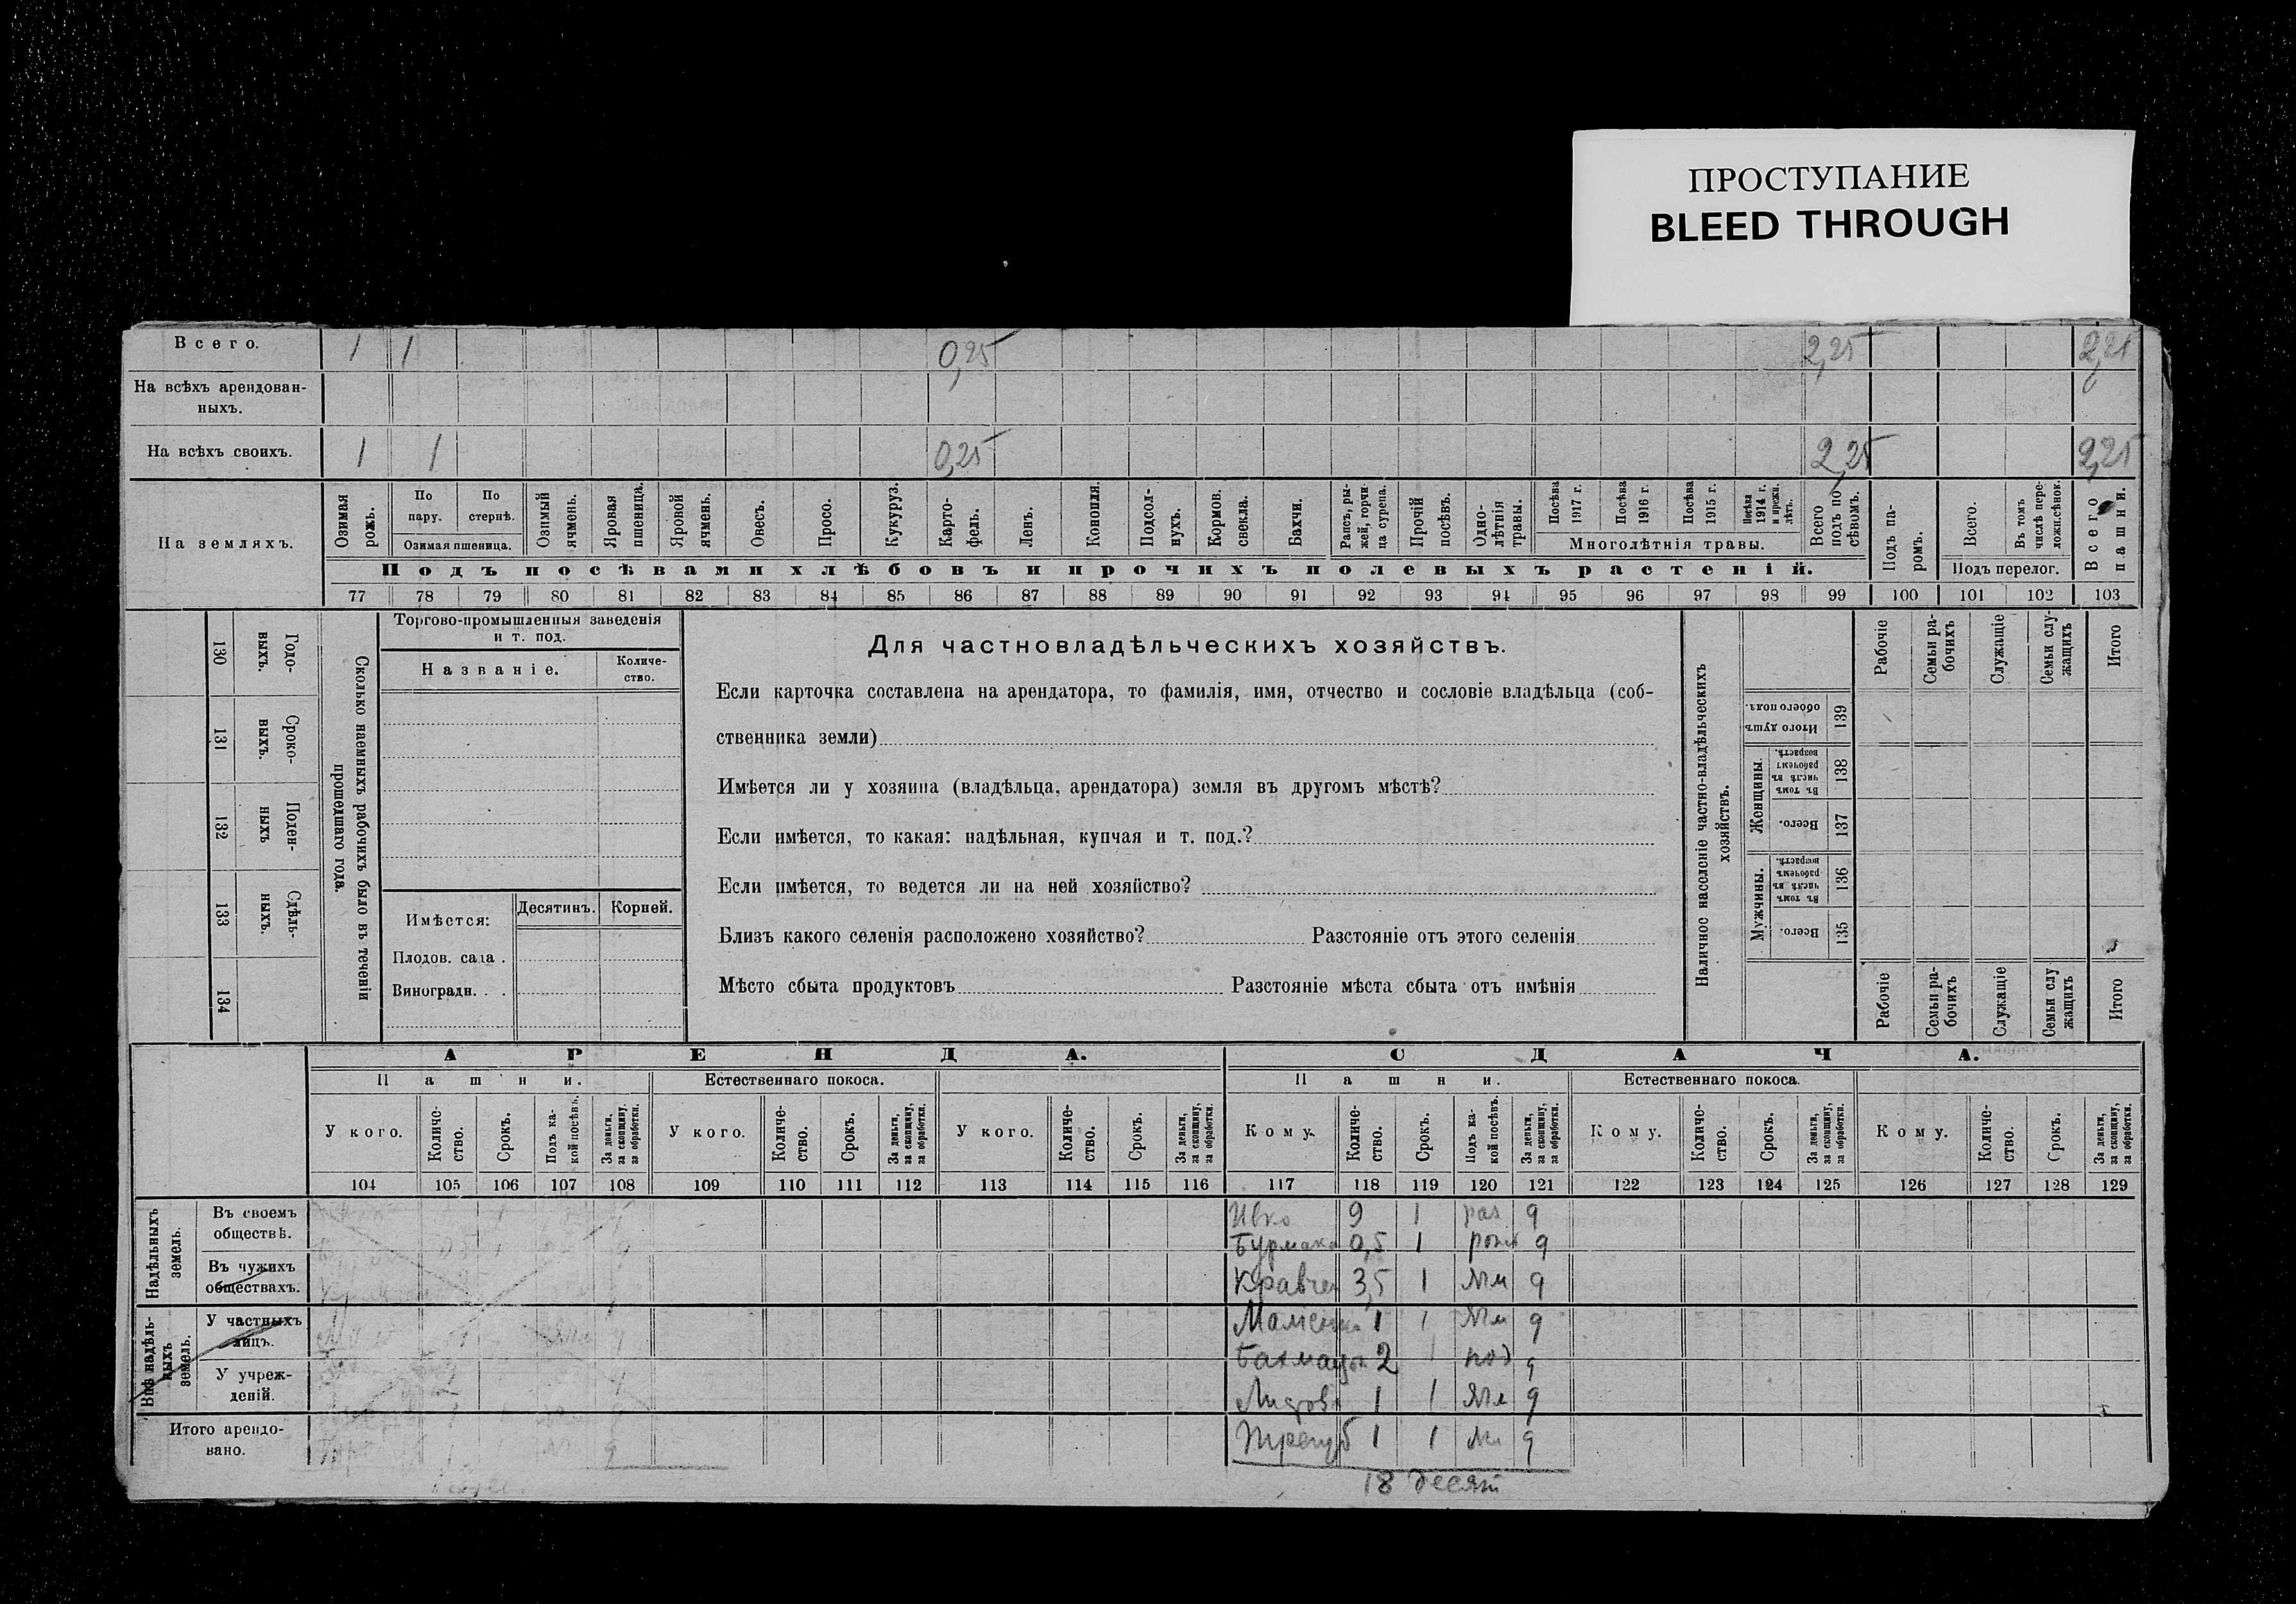 ПРОСТУПАНИЕ
BLEED THROUGH
Всего. 1 1 0,25 2,25 2,25
На всѣхъ арендован-
ныхъ.
На всѣхъ своихъ. 1 1 0,25 2,25 2,25
На земляхъ.
Озимая рожь.
По пару.
По стернѣ.
Озимая пшеница.
Озимый ячмень.
Яровая пшеница.
Яровой ячмень.
Овесъ.
Просо.
Кукуруз.
Карто-
фель.
Ленъ.
Конопля.
Подсол-
нухъ.
Кормов. свекла.
Бахчи.
Рапсъ, ры-
жей, горчи-
ца сурепа.
Прочій посѣвъ.
Одно-
лѣтнія травы.
Посѣва 1917 г.
Посѣва 1916 г.
Посѣва 1915 г.
Посѣва 1914 г. и прежн. лѣтъ.
Многолѣтнія травы.
Всего подъ по-
сѣвомъ.
Подъ па-
ромъ.
Всего.
Въ томъ числѣ пере-
ложн.сѣнок.
Подъ перелог.
Всего пашни.
Подъ посѣвами хлѣбовъ и прочихъ полевыхъ растеній.
77 78 79 80 81 82 83 84 85 86 87 88 89 90 91 92 93 94 95 96 97 98 99 100 101 102 103
130 Годо-
выхъ.
131 Сроко-
выхъ.
132 Поден-
ныхъ
133 Сдѣль-
ныхъ.
134
Сколько наемныхъ рабочихъ было въ теченіи
прошедшаго года.
Торгово-промышленныя заведенія
и т. под.
Названіе.
Количе-
ство.
Имѣется:
Десятинъ.
Корней.
Плодов. сада .
Виноградн. . .
Для частновладѣльческихъ хозяйствъ.
Если карточка составлена на арендатора, то фамилія, имя, отчество и сословіе владѣльца (соб-
ственника земли)
Имѣется ли у хозяина (владѣльца, арендатора) земля въ другомъ мѣстѣ?
Если имѣется, то какая: надѣльная, купчая и т. под.?
Если имѣется, то ведется ли на ней хозяйство?
Близъ какого селенія расположено хозяйство? Разстояніе отъ этого селенія
Мѣсто сбыта продуктовъ Разстояніе мѣста сбыта отъ имѣнія
Наличное населеніе частно-владѣльческихъ
хозяйствъ.
Рабочіе
Семьи ра-
бочихъ
Служащіе
Семьи слу-
жащихъ
Итого
Итого душъ обоего пола. 139
Женщины.
Въ томъ числѣ въ рабочемъ возрастѣ. 138
Всего. 137
Мужчины.
Въ томъ числѣ въ рабочемъ возрастѣ. 136
Всего. 135
Рабочіе
Семьи ра-
бочихъ
Служащіе
Семьи слу
жащихъ
Итого
АРЕНДА.
СДАЧА.
Пашни.
Естественнаго покоса.
Пашни.
Естественнаго покоса.
У кого.
Количе-
ство.
Срокъ.
Подъ ка-
кой посѣвъ.
За деньги, за скопщину, за обработки.
У кого.
Количе-
ство.
Срокъ.
За деньги, за скопщину, за обработки.
У кого.
Количе-
ство.
Срокъ.
За деньги, за скопщину, за обработки.
Кому.
Количе-
ство.
Срокъ.
Подъ ка-
кой посѣвъ.
За деньги, за скопщину, за обработки.
Кому.
Количе-
ство.
Срокъ.
За деньги, за скопщину, за обработки.
Кому.
Количе-
ство.
Срокъ.
За деньги, за скопщину, за обработки.
104 105 106 107 108 109 110 111 112 113 114 115 116 117 118 119 120 121 122 123 124 125 126 127 128 129
Надѣльныхъ земель.
Въ своемъ
обществѣ.
Въ чужихъ
обществахъ.
Внѣ надѣль-
ныхъ земель.
У частныхъ
лицъ.
У учреж-
деній.
Итого арендо-
вано.
Ивко 9 1 раз д
Бурмака 0,5 1 рожь д
Кравчен 3,5 1 д
1 1 д
2 1 под д
1 1 д
1 1 д
18 десят